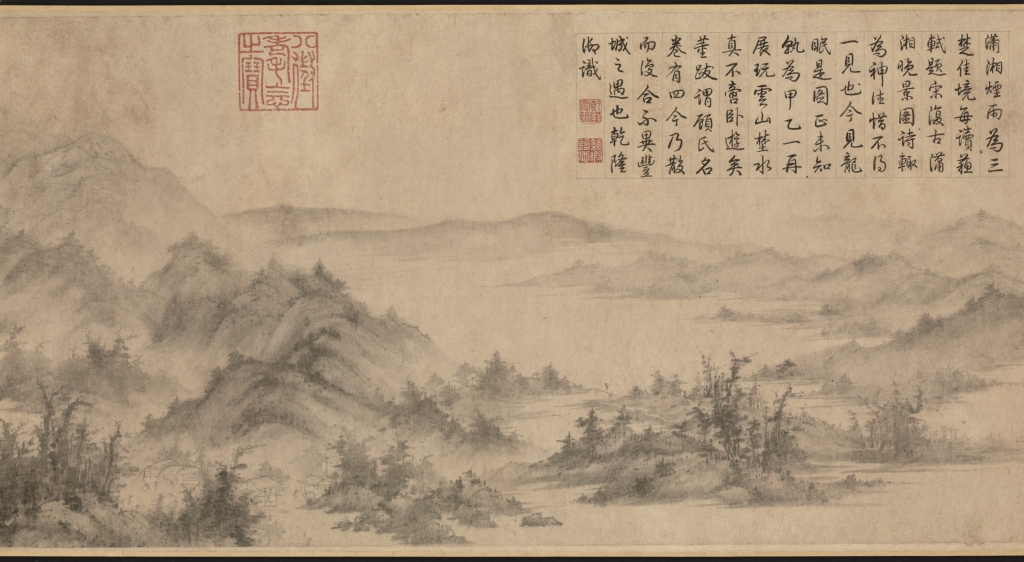 瀟湘煙雨為三
楚佳境每讀蘓
軾題宋復古瀟
湘晚景圖詩輙
為神往惜不得
一見也今見龍
眠是圖正未知
孰為甲乙一再
展玩雲山埜水
真不啻卧遊矣
董跋謂顧氏名
卷有四今乃散
而復合不異豐
城之遇也乾隆
御識
八徵
耄念
之寶